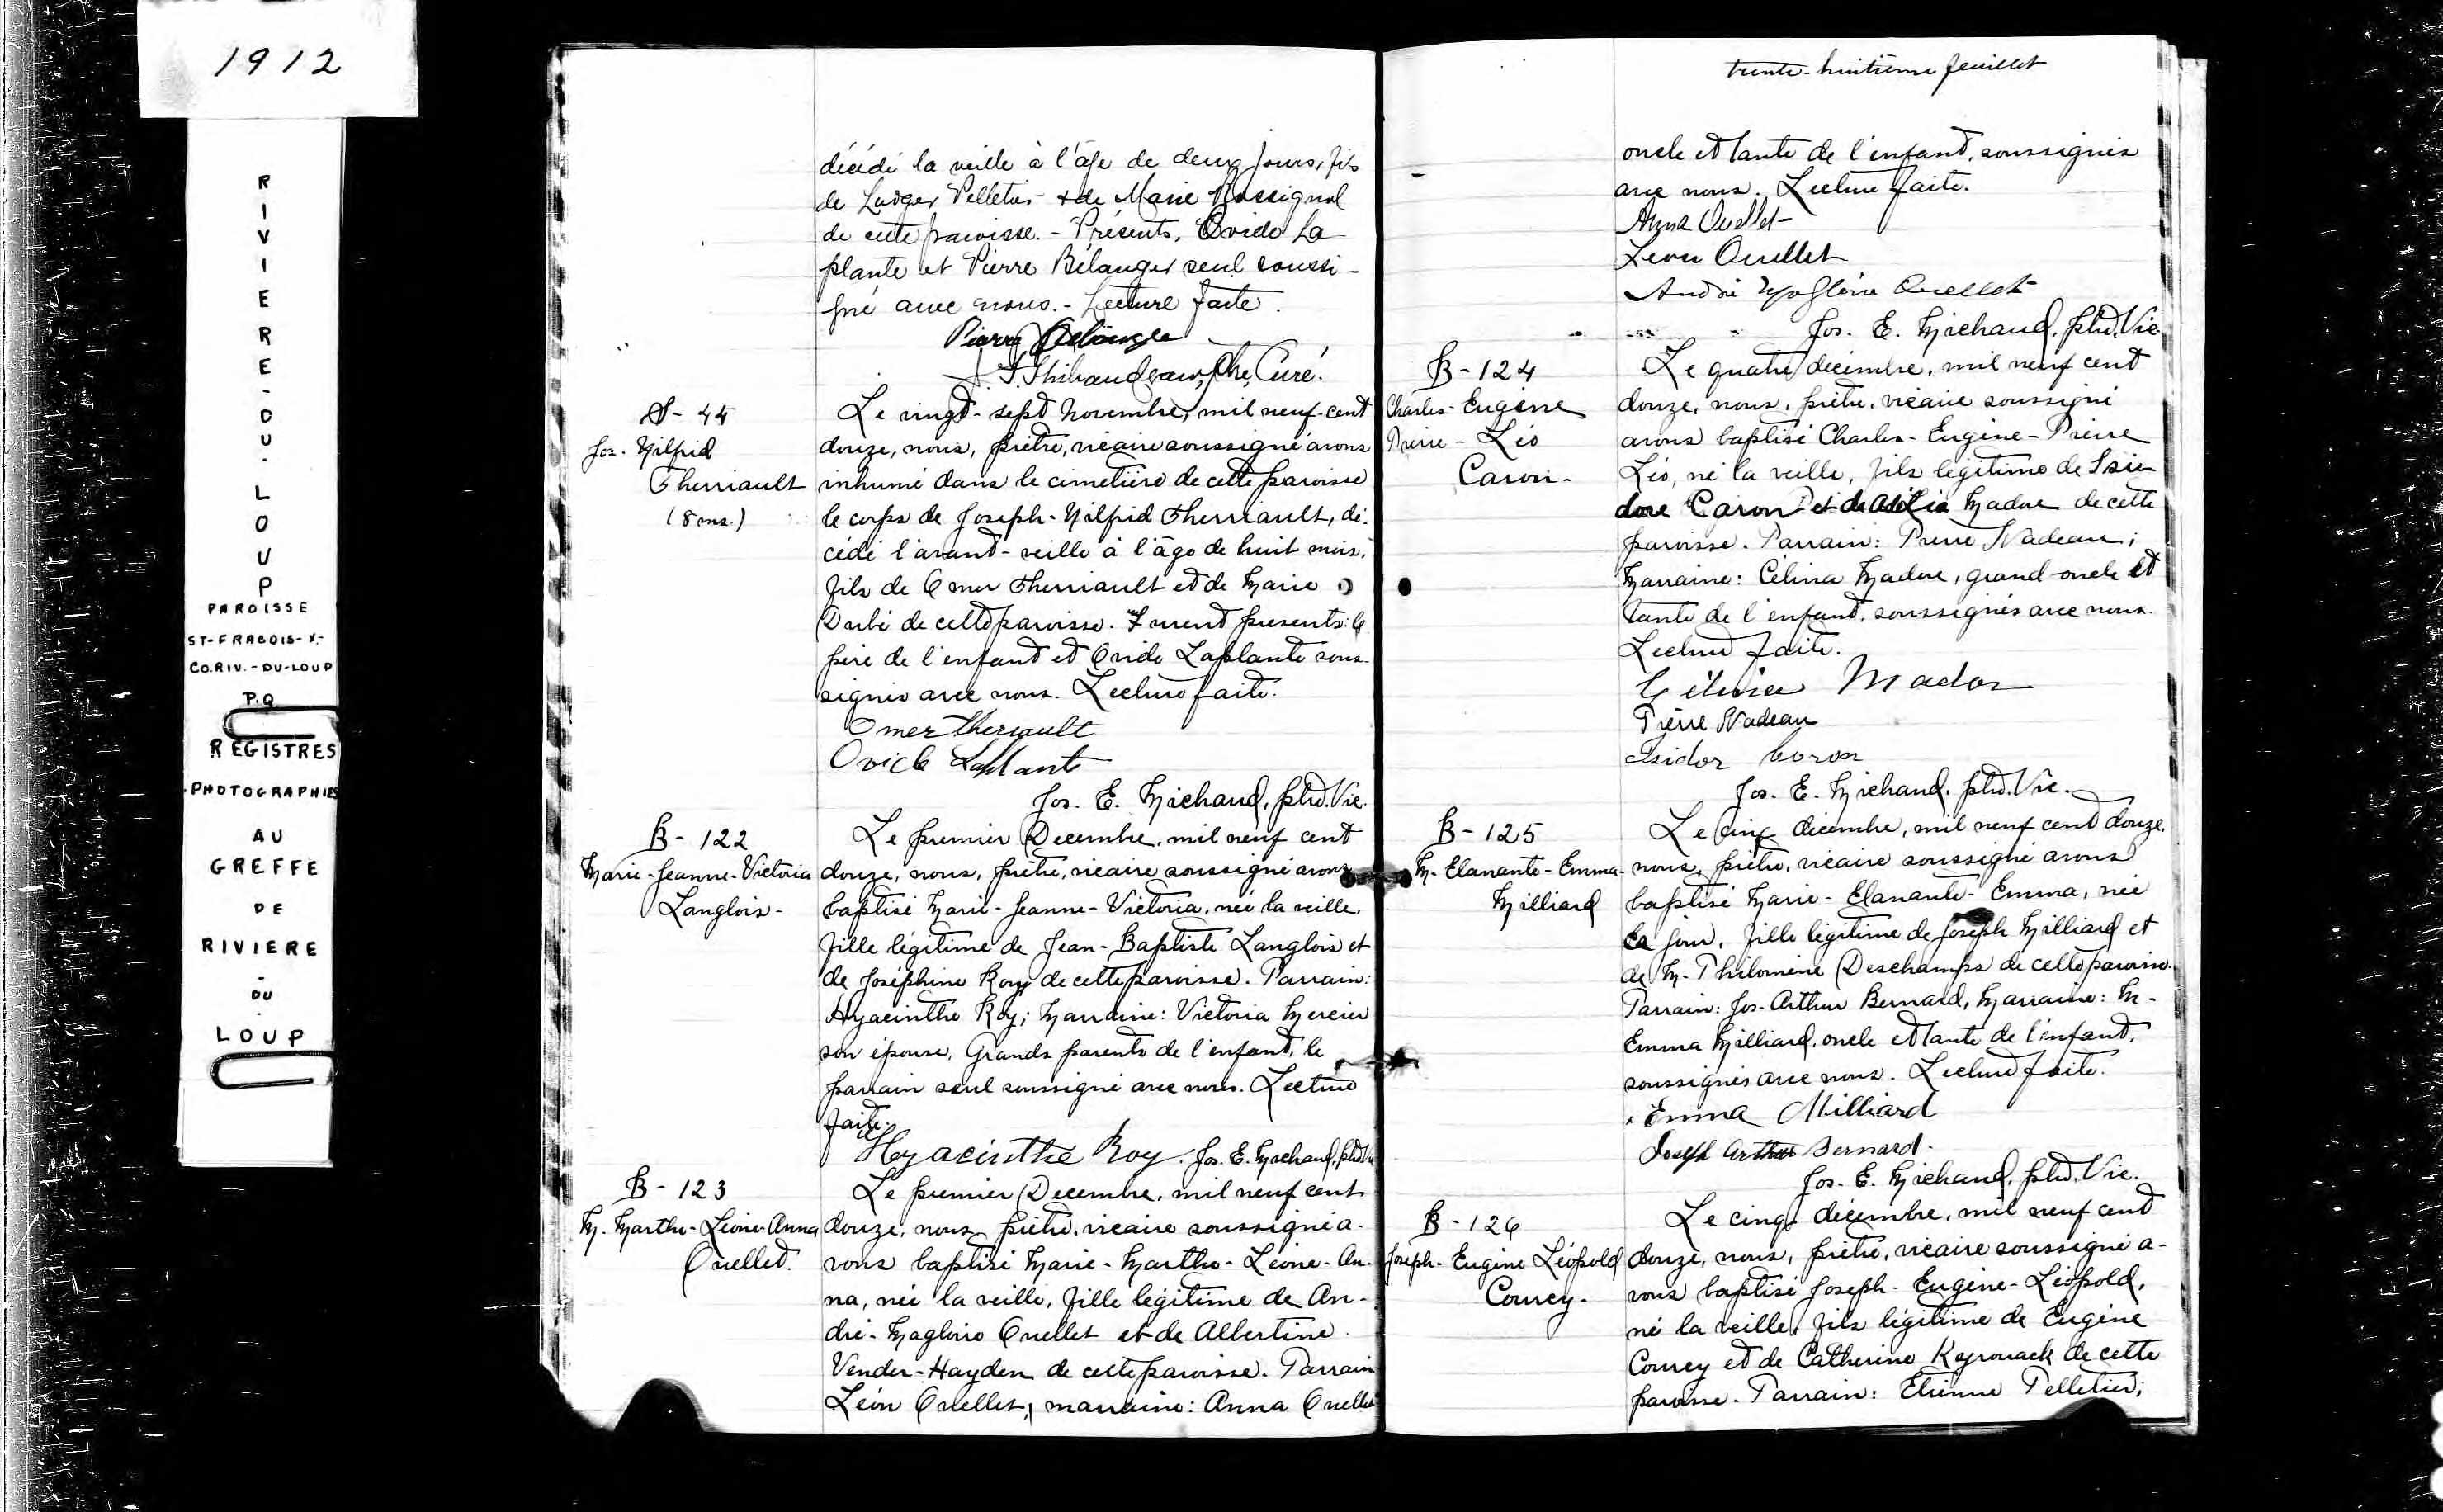 1912
RIVIERE-DU-LOUP
PAROISSE
ST-FRACOIS-X.-
CO.RIV.-DU-LOUP
P.Q
REGISTRES
PHOTOGRAPHIES
AU
GREFFE
DE
RIVIERE
-
DU
-
LOUP
décédé la veille à l'âge de deux jours, fils
de Ludger Pelletier & de Marie Rossignol
de cette paroisse. - Présents, Ovide La-
plante et Pierre Bélanger seul soussi-
gné avec nous. - Lecture faite.
Pierre Bélanger
J. Thibaudeau, Ptre, Curé.
S-44
Jos. Wilfrid
Therriault
(8 ms.)
Le vingt-sept Novembre, mil neuf-cent
douze, nous, prêtre, vicaire soussigné avons
inhumé dans le cimetière de cette paroisse
le corps de Joseph-Wilfrid Therriault, dé-
cédé l'avant-veille à l'âge de huit mois,
fils de Omer Therriault et de Marie
Dubé de cette paroisse. Furent présents: le
père de l'enfant et Ovide Laplante sous-
signés avec nous. Lecture faite.
Omer Theriault
Ovide Laplante
Jos. E. Michaud, ptre. Vic.
B-122
Marie-Jeanne-Victoria
Langlois-
Le premier Decembre, mil neuf cent
douze, nous, prêtre, vicaire soussigné avons
baptisé Marie-Jeanne-Victoria, née la veille,
fille légitime de Jean-Baptiste Langlois et
de Joséphine Roy de cette paroisse. Parrain:
Hyacinthe Roy; Marraine: Victoria Mercier
son épouse, Grands parents de l'enfant, le
parrain seul soussigné avec nous. Lecture
faite.
Hyacinthe Roy. Jos. E. Michaud, ptre Vic
B-123
M. Marthe-Léonie-Anna
Ouellet.
Le premier Decembre, mil neuf cent
douze, nous, prêtre, vicaire soussigné a-
vons baptisé Marie-Marthe-Léonie-An-
na, née la veille, fille légitime de An-
dré-Magloire Ouellet et de Albertine
Vender-Hayden de cette paroisse. Parrain
Léon Ouellet; marraine: Anna Ouellet
trente-huitième feuillet
oncle et tante de l'enfant, soussignés
avec nous. Lecture faite.
Anna Ouellet
Leon Ouellet
André Magloire Ouellet
Jos. E. Michaud, ptre. Vic.
B-124
Charles-Eugène
Pierre-Léo
Caron-
Le quatre décembre, mil neuf cent
douze, nous, prêtre, vicaire soussigné
avons baptisé Charles-Eugène-Pierre
Léo, né la veille, fils légitime de Isie-
dore Caron et de Madore de cette
paroisse. Parrain: Pierre Nadeau;
Marraine: Célina Madore, grand-oncle et
tante de l'enfant, soussignés avec nous.
Lecture faite.
Mador
Pierre Nadeau
Isidor Coron
Jos. E. Michaud, ptre. Vic.
B-125
M-Elanante-Emma-
Milliard
Le cinq décembre, mil neuf cent douze,
nous, prêtre, vicaire soussigné avons
baptisé Marie-Elanante-Emma, née
ce jour, fille légitime de Joseph Milliard et
de M-Philomène Deschamps de cette paroisse.
Parrain: Jos-Arthur Bernard, Marraine: M-
Emma Milliard, oncle et tante de l'enfant,
soussignés avec nous. Lecture faite.
Emma Milliard
Joseph Arthur Bernard.
Jos. E. Michaud, ptre. Vic.
B-126
Joseph-Eugène Léopold
Courcy-
Le cinq décembre, mil neuf cent
douze, nous, prêtre, vicaire soussigné a-
vons baptisé Joseph-Eugène-Léopold,
né la veille, fils légitime de Eugène
Courcy et de Catherine Kyrouack de cette
paroisse. Parrain: Etienne Pelletier;